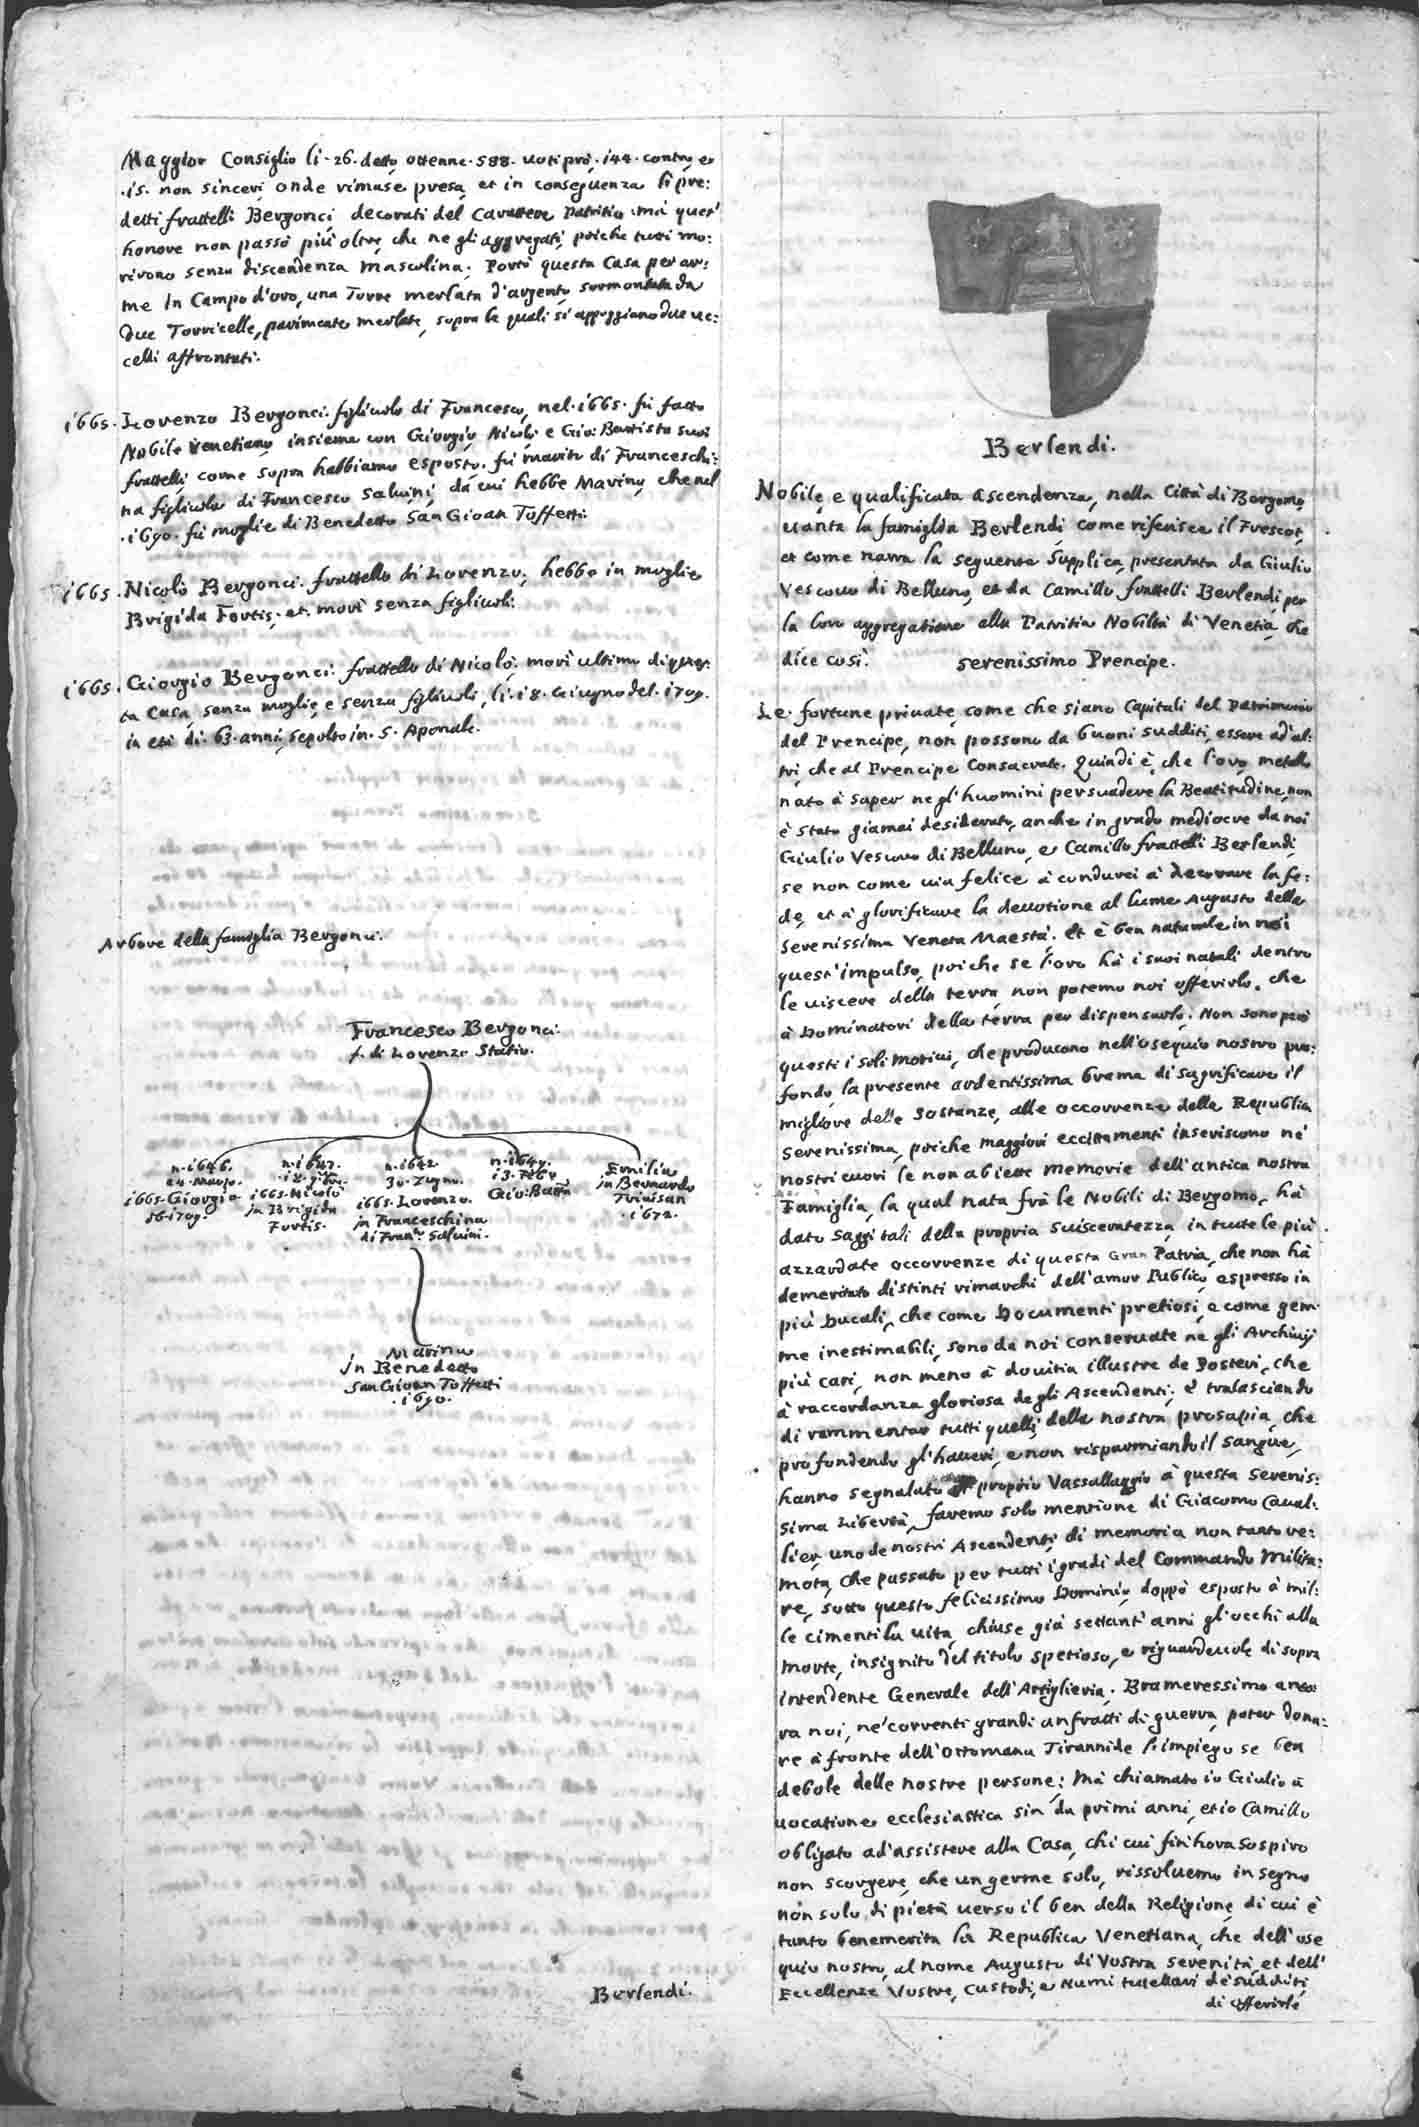 Maggior Consiglio li · 26 · detto, ottenne · 588 · uoti prò, · 144 · contro, et
· 15 · non sinceri, onde rimase presa, et in consequenza li pre:
detti frattelli Bergonci, decorati del Carattere Patritio, mà quest'
honore non passò più oltre, che ne gli aggregati, poiche tutti mo:
rirono senza discendenza Mascolina. Portò questa Casa per ar:
me In Campo d'oro, una Torre merlata d'argento, sormontata da
due Torricelle, parimente merlate, sopra le quali si appoggiano due uc:
celli affrontati.
1665. Lorenzo Bergonci. figliuolo di Francesco, nel · 1665 · fù fatto
Nobile Venetiano, insieme con Giorgio, Nicolò, e Gio: Battista suoi
frattelli, come sopra habbiamo esposto. fù marito di Franceschi:
na figliuola di Francesco Saluini, da cui hebbe Marina, che nel
· 1690 · fù moglie di Benedetto San Gioan Toffetti.
1665. Nicolò Bergonci. frattello di Lorenzo, hebbe in moglie
Brigida Fortis, et morì senza figliuoli.
1665. Giorgio Bergonci. frattello di Nicolò, morì ultimo di ques:
ta Casa, senza moglie, e senza figliuoli, li · 18 · Giugno del · 1709 ·
in età di · 63 · anni, sepolto in · S · Aponale.
Arbore della famiglia Bergonci.
Francesco Bergonci.
f. di Lorenzo Statio.
n. 1646.
24. Marzo.
1665. Giorgio
16. 1709.
n. 1647.
1665. Nicolò
in Brigida
Fortis.
n. 1642
30. Zugno.
1665. Lorenzo.
in Franceschina
di Fran.co Saluini.
n. 1649.
13. Feb.o
Gio: Batta
Emilia
in Bernardo
Triuisan
· 1672 ·
Marina
in Benedetto
San Gioan Toffetti
· 1690 ·
Berlendi.
Berlendi.
Nobile, e qualificata ascendenza, nella Città di Bergomo,
uanta la famiglia Berlendi, come riferisce il Frescot,
et come narra la seguente Supplica, presentata da Giulio
Vescouo di Belluno, et da Camillo, frattelli Berlendi, per
la loro aggregatione alla Patritia Nobiltà di Venetia, che
dice così. Serenissimo Prencipe.
Le fortune priuate, come che siano Capitali del Patrimonio
del Prencipe, non possono da buoni sudditi, essere ad'al:
tri, che al Prencipe Consacrate. Quindi è, che l'oro, metallo
nato à saper negl'huomini persuadere la Beatitudine, non
è stato giamai desiderato, anche in grado mediocre da noi
Giulio Vescouo di Belluno, e Camillo frattelli Berlendi,
se non come uia felice à condurci à decorare la fe:
de, et à glorificare la deuotione al lume Augusto della
Serenissima Veneta Maestà. Et è ben naturale in noi
quest'impulso, poiche se l'oro hà i suoi natali dentro
le uiscere della terra, non potemo noi offerirlo, che
à Dominatori della terra per dispensarlo. Non sono però
questi i soli motiui, che producono nell'osequio nostro pro:
fondo, la presente ardentissima brama di sagrificare il
migliore delle sostanze, alle occorrenze della Republica
Serenissima, poiche maggiori eccittamenti inseriscono ne'
nostri cuori le non abiette memorie dell'antica nostra
Famiglia, la qual nata frà le Nobili di Bergomo, hà
dato saggi tali della propria suisceratezza, in tutte le più
azzardate occorrenze di questa Gran Patria, che non hà
demeritato distinti rimarchi dell'amor Publico, espresso in
più Ducali, che come Documenti pretiosi, e come gem:
me inestimabili, sono da noi conseruate ne gli Archiuij
più cari, non meno à douitia illustre de Posteri, che
à raccordanza gloriosa degli Ascendenti; e tralasciando
di rammentar tutti quelli della nostra prosapia, che
profondendo gl'haueri, e non risparmiando il sangue,
hanno segnalato il proprio Vassallaggio à questa Serenis:
sima Libertà, faremo solo mentione di Giacomo Caual:
lier, uno de nostri Ascendenti, di memoria non tanto re:
mota, che passato per tutti i gradi del Commando Milita:
re, sotto questo felicissimo Dominio, doppò esposto à mil:
le cimenti la uita, chiuse già settant'anni gl'occhi alla
morte, insignito del titolo spetioso, e riguardeuole di sopra
intendente Generale dell'Artiglieria. Brameressimo anco:
ra noi, ne' correnti grandi anfratti di guerra, poter dona:
re à fronte dell'Ottomana Tirannide l'impiego se ben
debole delle nostre persone; Mà chiamato io Giulio à
uocatione ecclesiastica sin da primi anni, et io Camillo
obligato ad'assistere alla Casa, di cui fin'hora sospiro
non scorgere, che un germe solo, rissoluemo in segno
non solo di pietà uerso il ben della Religione, di cui è
tanto benemerita la Republica Venetiana, che dell'ose
quio nostro, al nome Augusto di Vostra Serenità, et dell'
Eccellenze Vostre, Custodi, e Numi tutellari de sudditi,
di offerirle